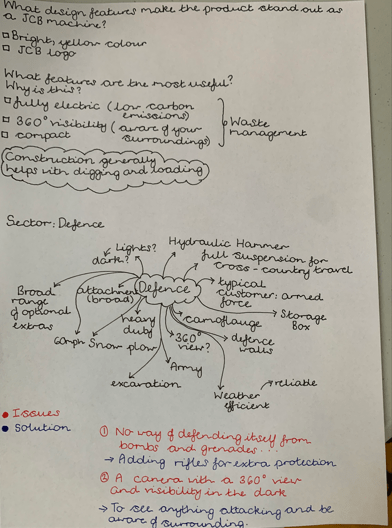 What design features make the product stand out as
a JCB machine?
Bright, yellow colour
JCB logo
What features are the most useful?
Why is this?
fully electric (low carbon
emissions)
360° visibility (aware of your
surroundings)
compact
Waste
management
Construction generally
helps with digging and loading
Sector: Defence
Lights?
dark?
Hydraulic Hammer
full suspension for
cross-country travel
Defence
typical
customer: armed
force
Storage
Box
camoflauge
defence
walls
360°
view?
Weather
efficient
reliable
Army
excaration
heavy
duty
Snow plow
60mph
attachment
(broad)
Broad
range
of optional
extras
Issues
Solution
① No way of defending itself from
bombs and grenades...
→ Adding rifles for extra protection
② A camera with a 360° view
and visibility in the dark
→ To see anything attacking and be
aware of surrounding.